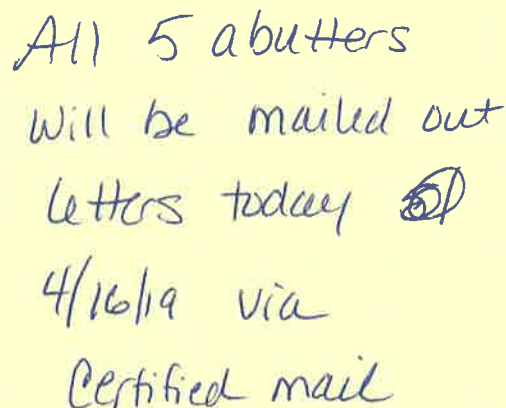 All 5 abutters
will be mailed out
letters today
4/16/19 via
Certified mail